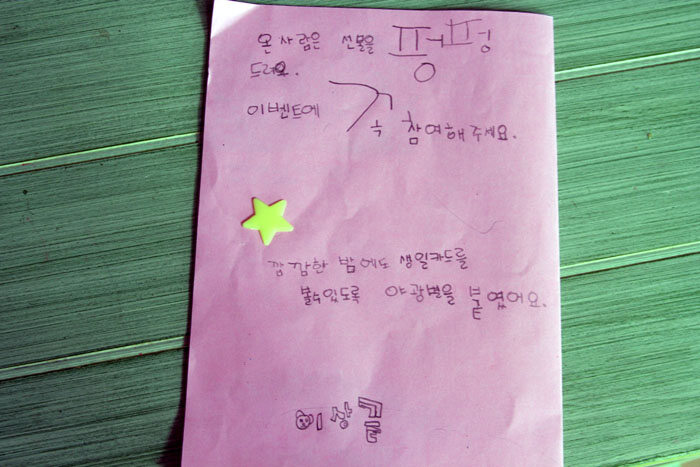 온 사람은 선물을 펑펑
드려요.
이벤트에 꼭 참여해주세요.
깜깜한 밤에도 생일카드를
볼수있도록 야광별을 붙였어요.
이상끝